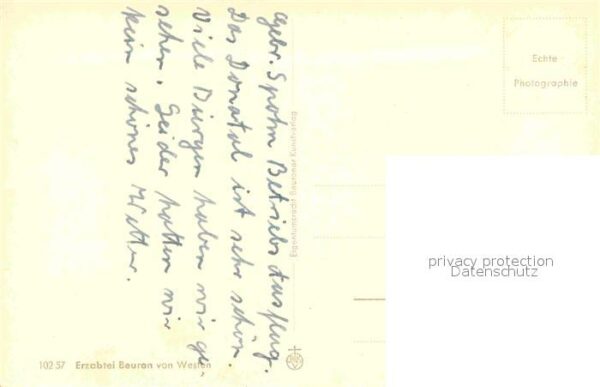 Gebr. Spohn Betriebs Ausflug.
Das Donautal ist sehr schön.
Viele Burgen haben wir ge-
sehen. Leider hatten wir
kein schönes Wetter.
Echte
Photographie
Eigentumsrecht Beuroner Kunstverlag
privacy protection
Datenschutz
10257 Erzabtei Beuron von Westen